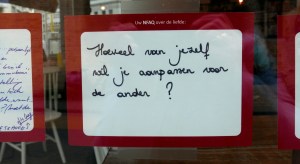 Uw NFAQ over de liefde:
Hoeveel van jezelf
wil je aanpassen voor
de ander ?